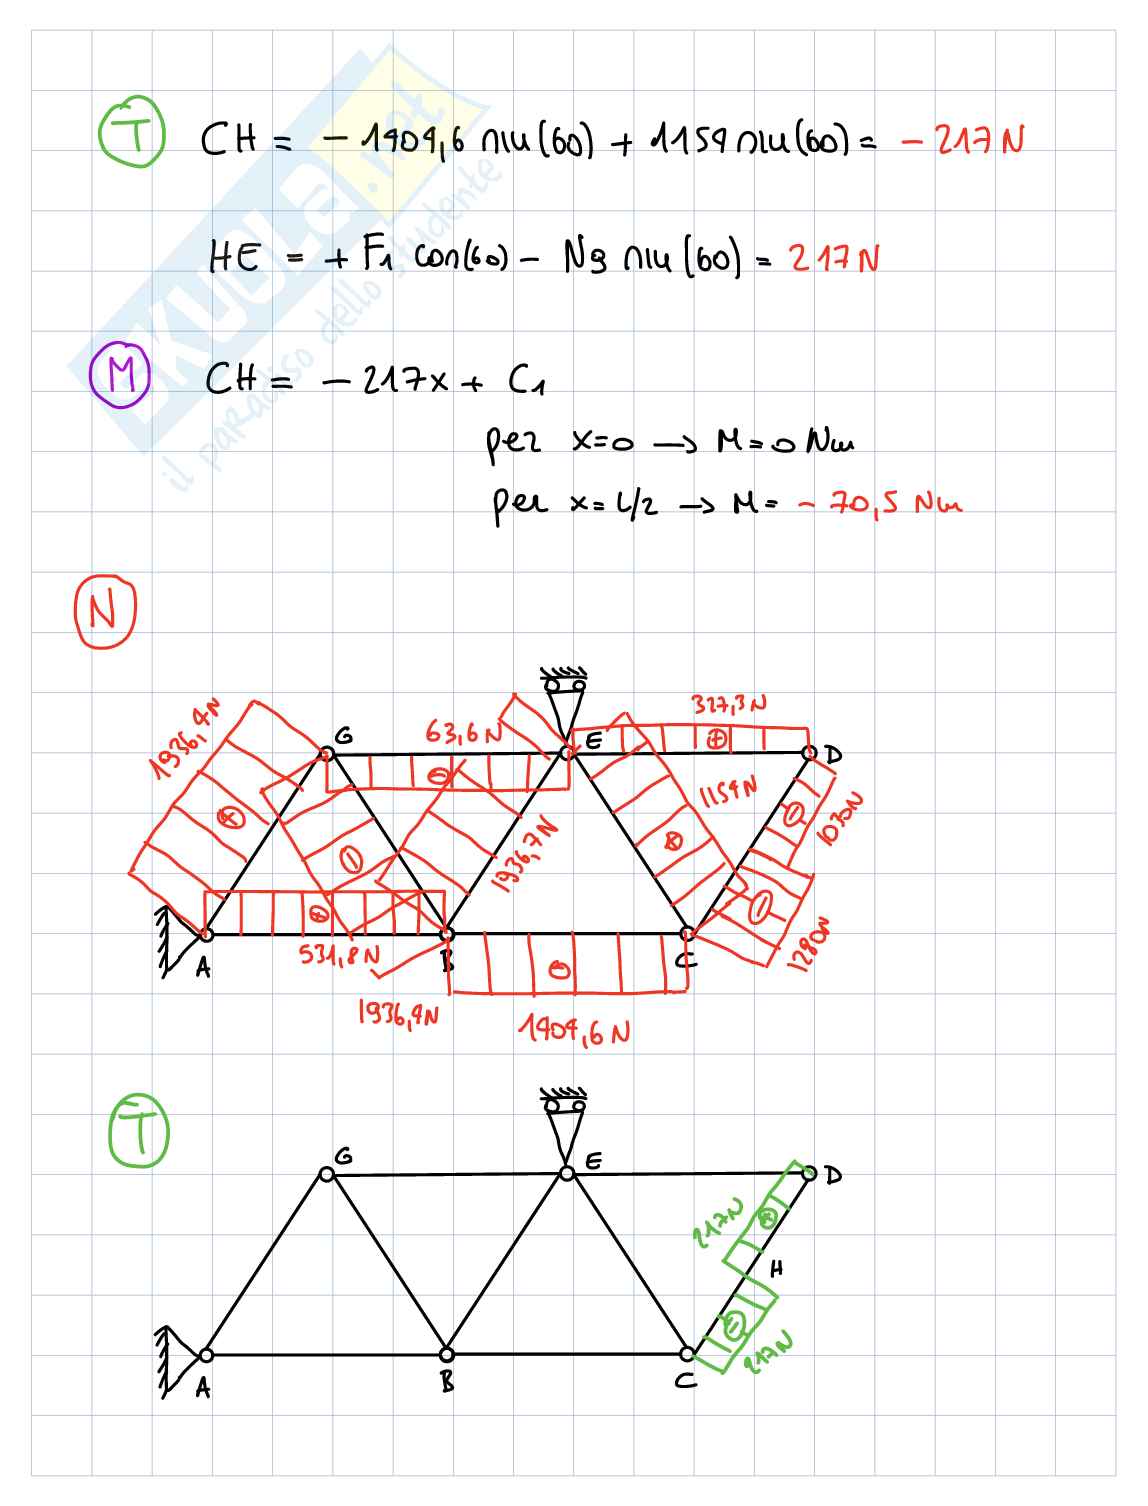 T CH = - 1404,6 sin(60) + 1154 sin(60) = - 217 N
HE = + F1 cos(60) - N9 sin(60) = 217 N
M CH = - 217x + C1
per x=0 → M = 0 Nm
per x = L/2 → M = - 70,5 Nm
SKUOLA.net
il paradiso dello studente
N
1936,4N
G
63,6 N
E
327,3 N
D
+
-
+
1154N
-
1030N
+
-
1936,7N
+
-
1280N
A
531,8N
B
C
1936,4N
1404,6 N
T
G
E
D
217N
+
H
-
217N
A
B
C